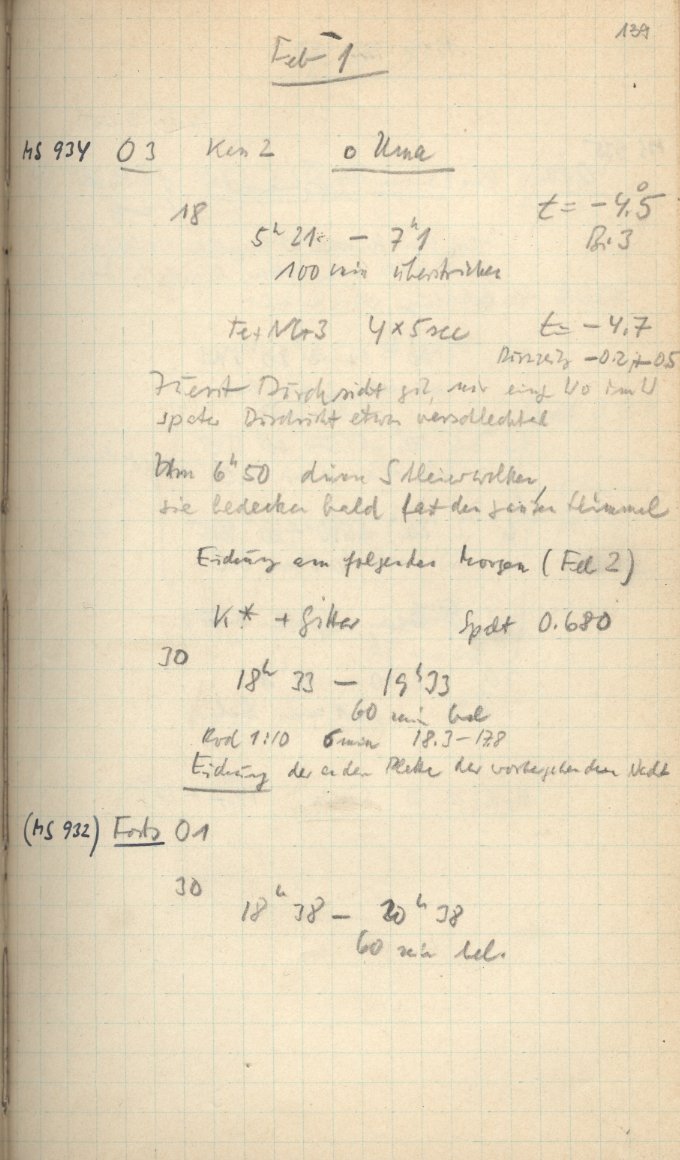 139
Feb 1
MS 934 O 3 Kem 2 o Uma
18 t = -4.°5
5ʰ 21 - 7ʰ 1 Bi 3
100 min überstrichen
Fe + Ni 3 4 × 5 sec t = -4.7
-0.2 -0.5
Zuerst Durchsicht gut, nur
später Durchsicht etwas verschlechtert
Um 6ʰ 50 dünne Schleierwolken,
sie bedecken bald fast den ganzen Himmel
Eichung am folgenden Morgen (Feb 2)
K* + Gitter Spalt 0.680
30
18ʰ 33 - 19ʰ 33
60 min bel
Rod 1:10 6 min 18.3 - 17.8
Eichung der ersten Platte der vorhergehenden Nacht
(MS 932) Forts O 1
30
18ʰ 38 - 20ʰ 38
60 min bel.